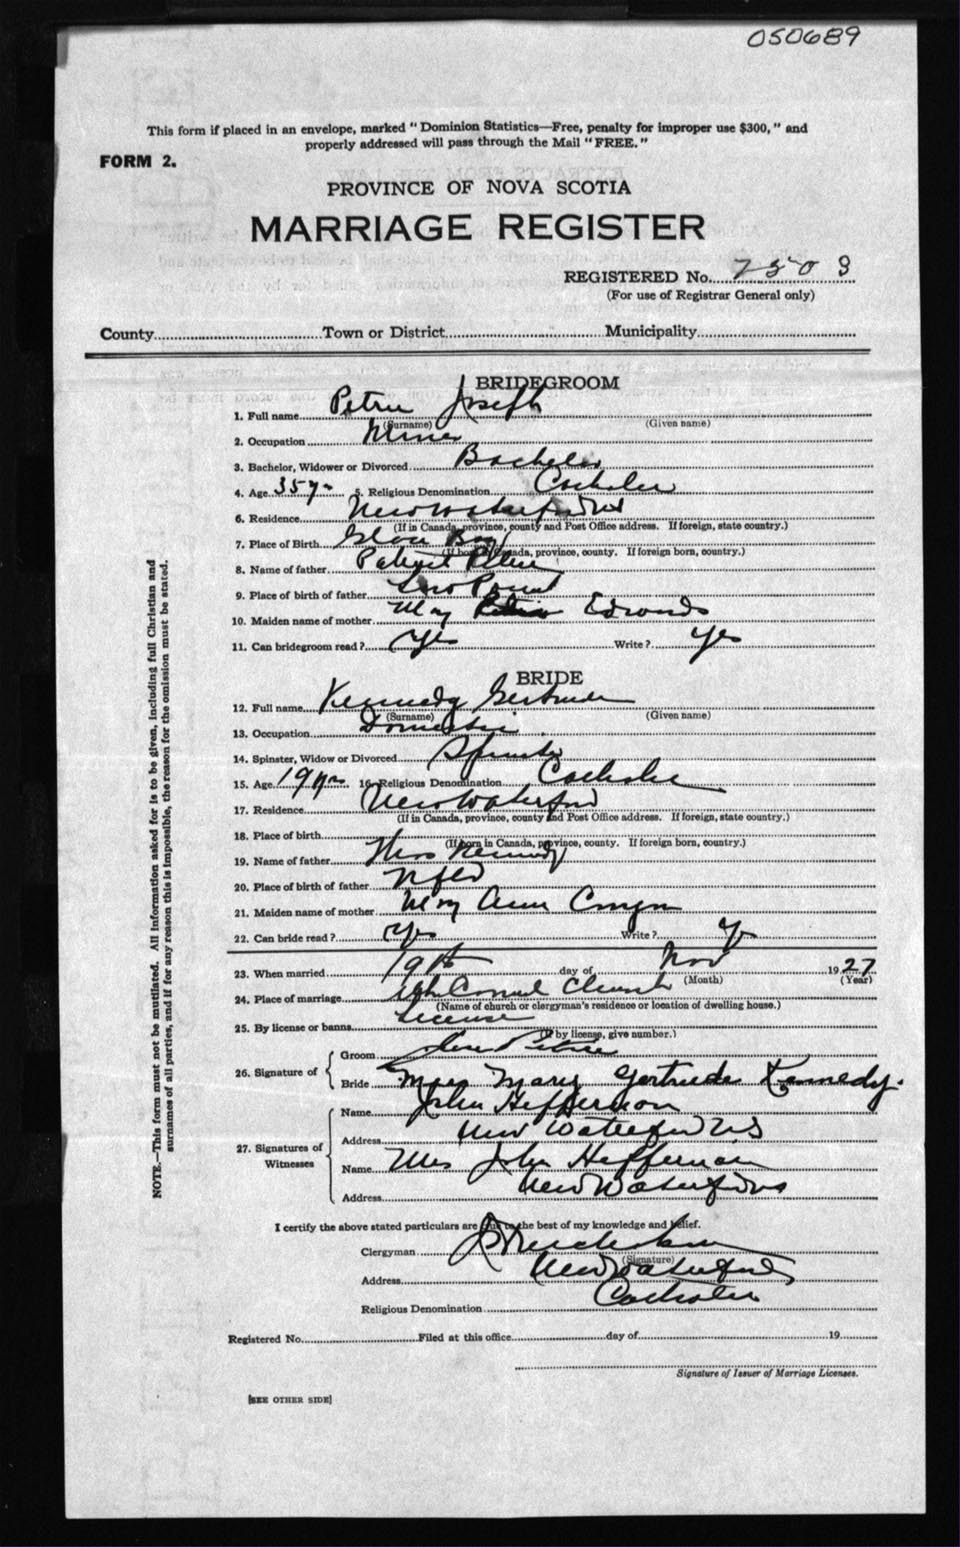 050689
This form if placed in an envelope, marked "Dominion Statistics—Free, penalty for improper use $300," and
properly addressed will pass through the Mail "FREE."
FORM 2.
PROVINCE OF NOVA SCOTIA
MARRIAGE REGISTER
REGISTERED No. 2503
(For use of Registrar General only)
County Town or District Municipality
BRIDEGROOM
1. Full name Petrie Joseph
(Surname) (Given name)
2. Occupation Miner
3. Bachelor, Widower or Divorced Bachelor
4. Age 35 yrs 5. Religious Denomination Catholic
6. Residence New Waterford NS
(If in Canada, province, county and Post Office address. If foreign, state country.)
7. Place of Birth Glace Bay
(If born in Canada, province, county. If foreign born, country.)
8. Name of father Petrie
9. Place of birth of father
10. Maiden name of mother May Edwards
11. Can bridegroom read? Yes Write? Yes
BRIDE
12. Full name Kennedy Gertrude
(Surname) (Given name)
13. Occupation Domestic
14. Spinster, Widow or Divorced Spinster
15. Age 19 yrs 16. Religious Denomination Catholic
17. Residence New Waterford
(If in Canada, province, county and Post Office address. If foreign, state country.)
18. Place of birth
(If born in Canada, province, county. If foreign born, country.)
19. Name of father Thos Kennedy
20. Place of birth of father Nfld
21. Maiden name of mother Mary Ann
22. Can bride read? Yes Write? Yes
23. When married 19th day of Nov 1927
(Month) (Year)
24. Place of marriage Mt Carmel Church
(Name of church or clergyman's residence or location of dwelling house.)
25. By license or banns License
(If by license, give number.)
26. Signature of
Groom Petrie
Bride Miss Mary Gertrude Kennedy.
27. Signatures of Witnesses
Name John Heffernan
Address New Waterford NS
Name Mrs John Heffernan
Address New Waterford NS
I certify the above stated particulars are true to the best of my knowledge and belief.
Clergyman
(Signature)
Address New Waterford
Religious Denomination Catholic
Registered No. Filed at this office day of 19
Signature of Issuer of Marriage Licenses.
[SEE OTHER SIDE]
NOTE.—This form must not be mutilated. All information asked for is to be given, including full Christian and
surnames of all parties, and if for any reason this is impossible, the reason for the omission must be stated.